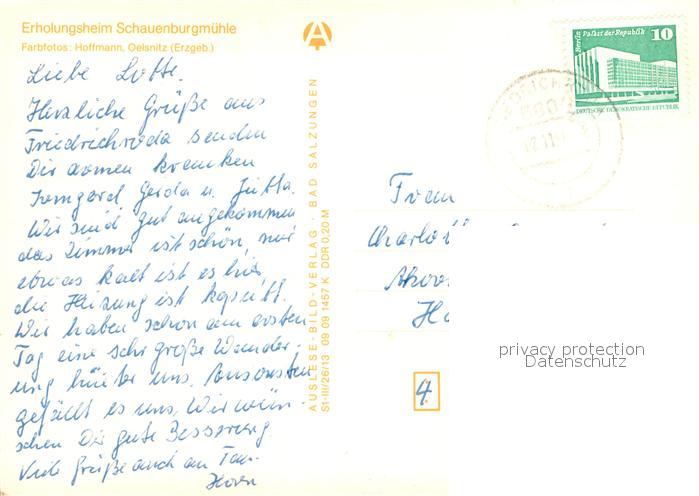 Erholungsheim Schauenburgmühle
Farbfotos: Hoffmann, Oelsnitz (Erzgeb.)
Liebe Lotte.
Herzliche Grüße aus
Friedrichroda senden
Dir armen kranken
Irmgard, Gerda u. Jutta.
Wir sind gut angekommen
das Zimmer ist schön, nur
etwas kalt ist es hier,
die Heizung ist kaputt.
Wir haben schon am ersten
Tag eine sehr große Wander-
ung hinter uns. Ansonsten
gefällt es uns. Wir wün-
schen Dir gute Besserung.
Viele Grüße auch an
AUSLESE-BILD-VERLAG · BAD SALZUNGEN
S1-III/26/13 09 09 1457 K DDR 0,20 M
Berlin Palast der Republik 10
DEUTSCHE DEMOKRATISCHE REPUBLIK
Frau
4
privacy protection
Datenschutz